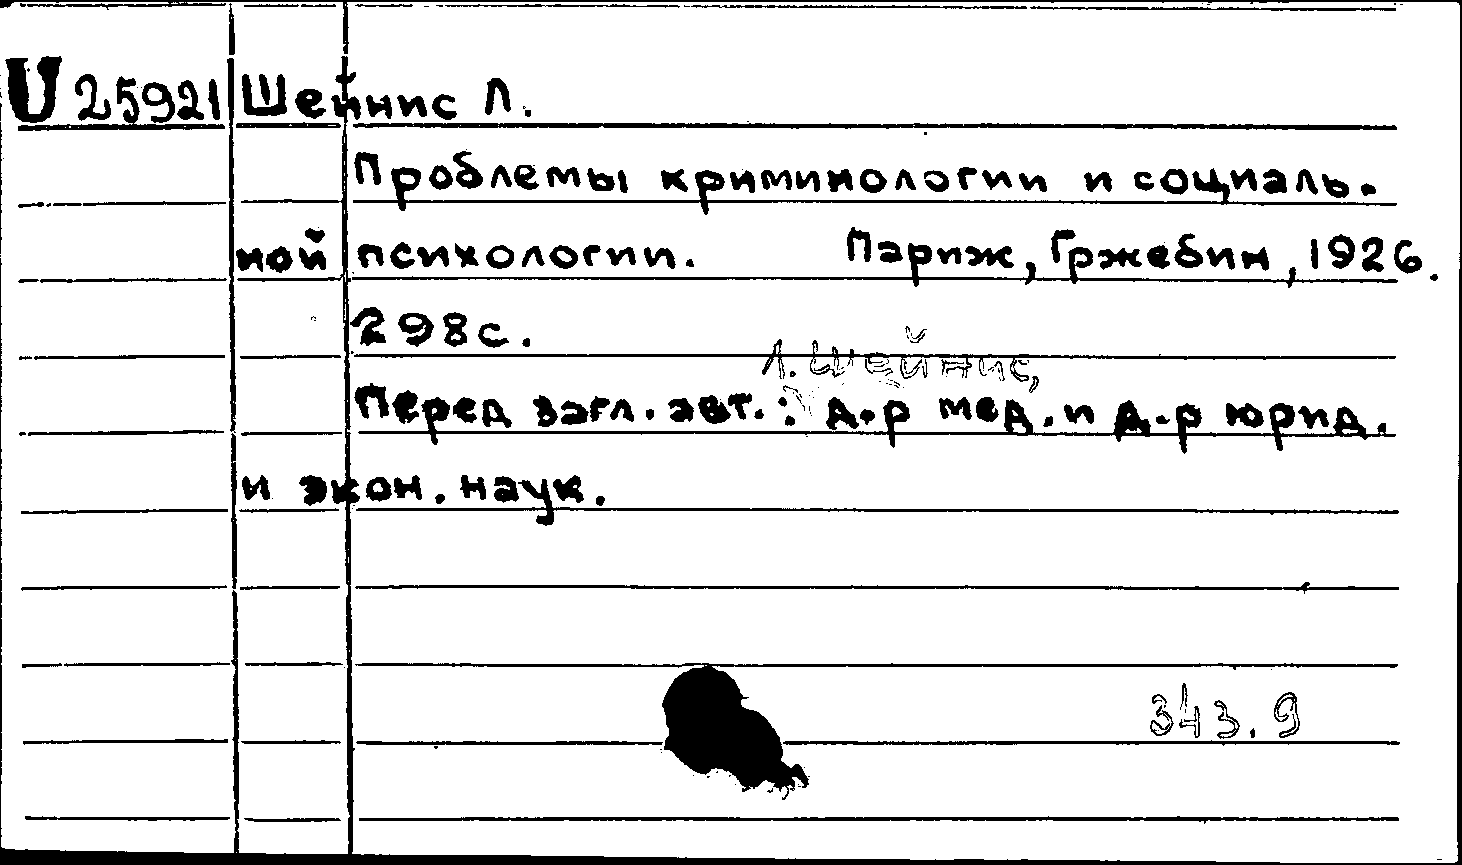 U 25921 Шейнис Л.
Проблемы криминологии и социаль-
ной психологии. Париж, Гржебин, 1926.
298с.
Л. Шейнис,
Перед загл. авт.: д-р мед. и д-р юрид.
и экон. наук.
343.9